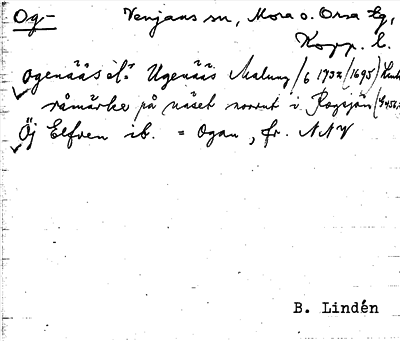 Og- Venjans sn, Mora o. Orsa tg,
Kopp. l.
ogenääs el. Ugenääs Malung /6 1732 /1695/
råmärke på näset norrut i
Öj Elfven ib. = Ogan, fr. NNV
B. Lindén